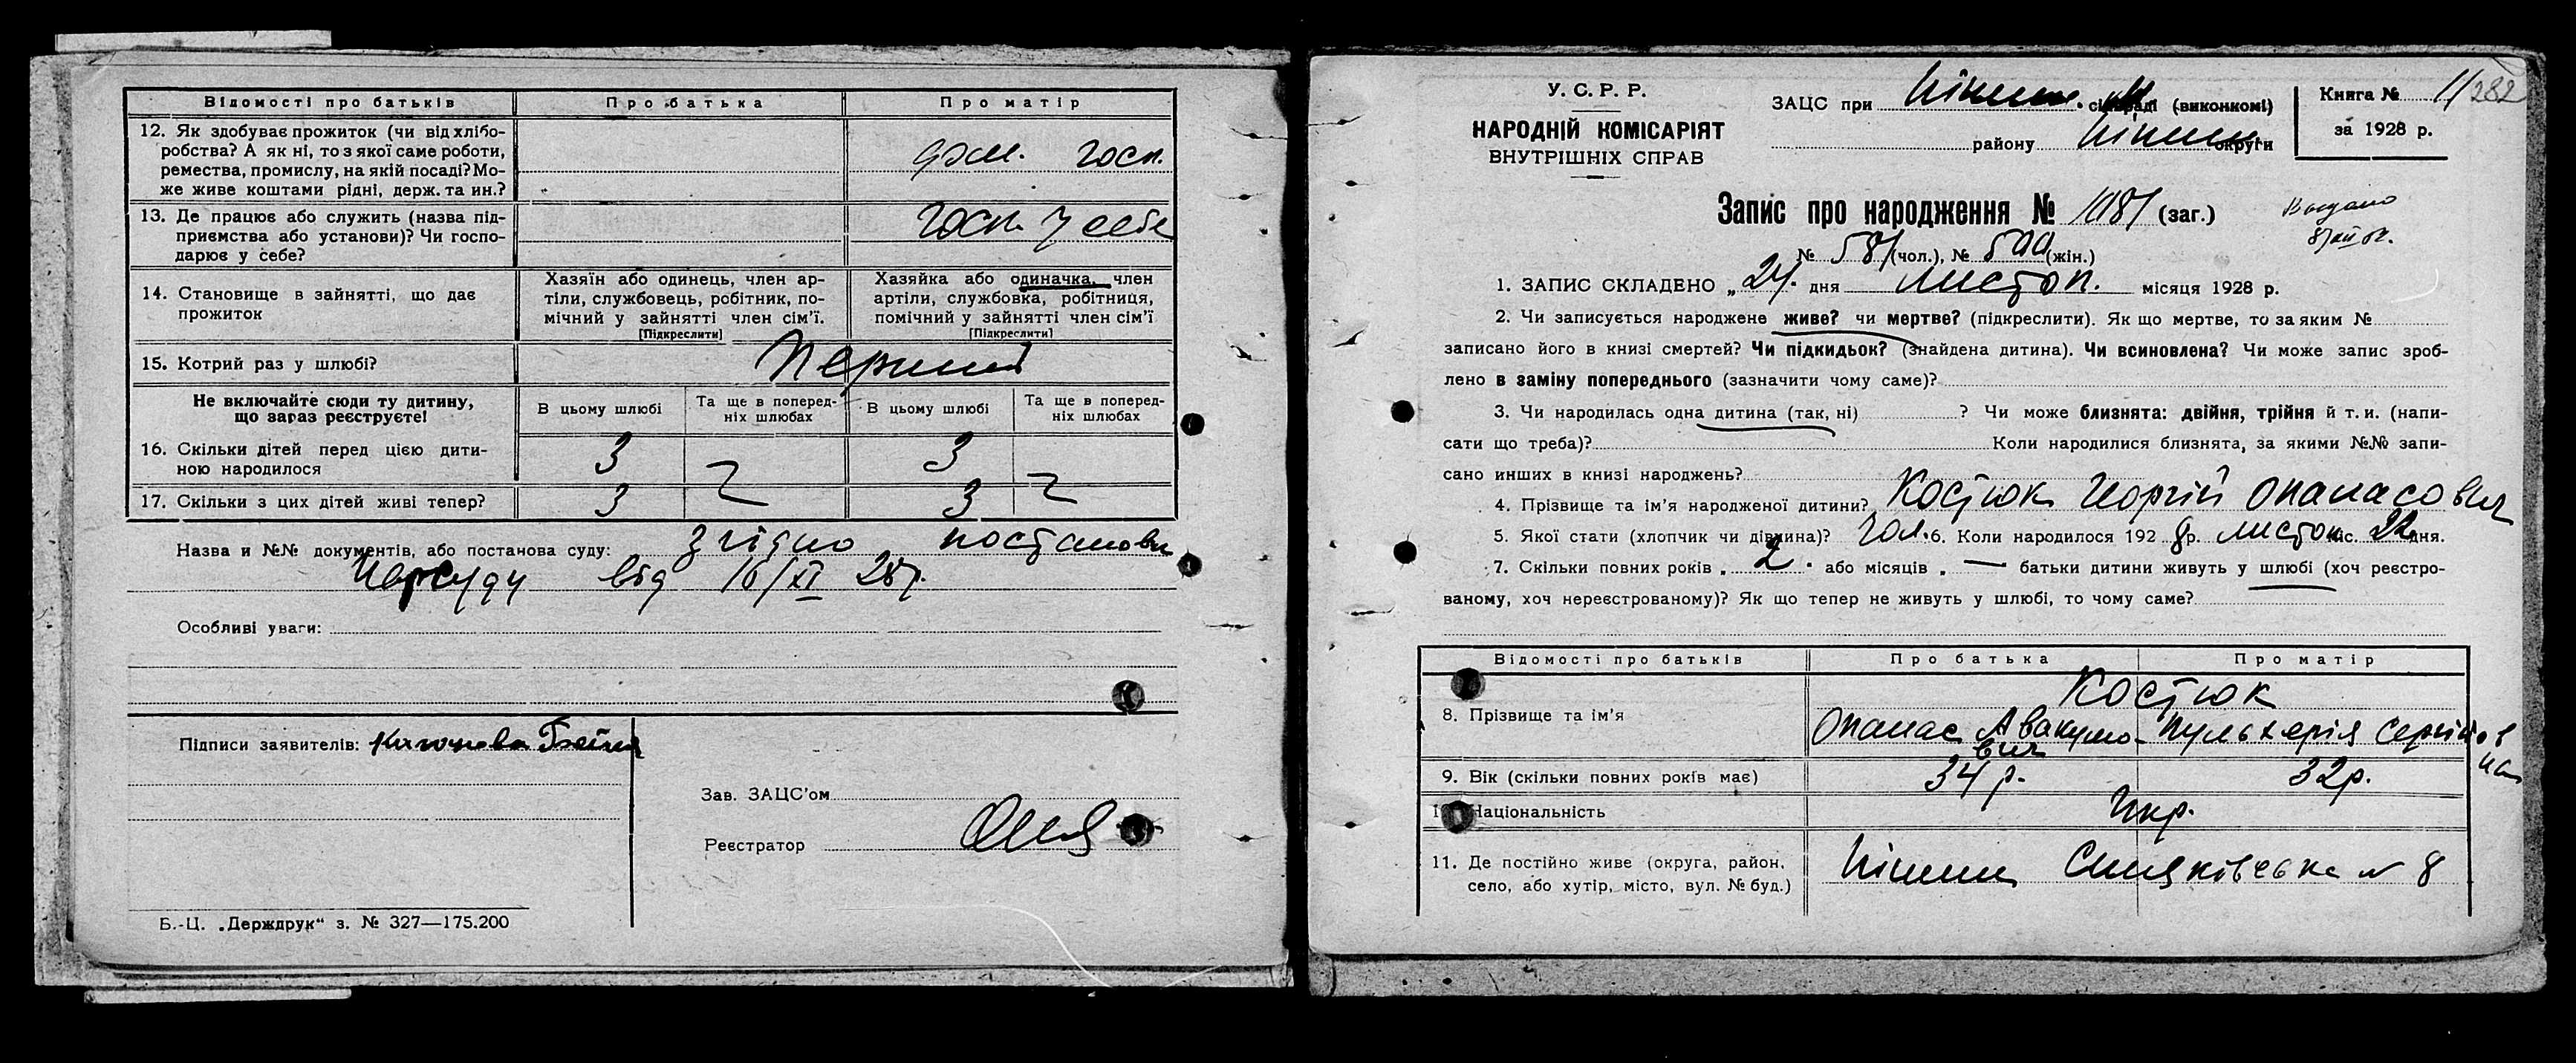 Відомості про батьків Про батька Про матір
12. Як здобуває прожиток (чи від хлібо-
робства? А як ні, то з якої саме роботи,
ремества, промислу, на якій посаді? Мо-
же живе коштами рідні, держ. та ин.?
дом. госп.
13. Де працює або служить (назва під-
приємства або установи)? Чи госпо-
дарює у себе?
госп. у себе
14. Становище в зайнятті, що дає
прожиток
Хазяїн або одинець, член ар-
тіли, службовець, робітник, по-
мічний у зайнятті член сім'ї.
[Підкреслити]
Хазяйка або одиначка, член
артіли, службовка, робітниця,
помічний у зайнятті член сім'ї
[Підкреслити]
15. Котрий раз у шлюбі? Перший
Не включайте сюди ту дитину,
що зараз реєструєте!
В цьому шлюбі Та ще в поперед-
ніх шлюбах В цьому шлюбі Та ще в поперед-
ніх шлюбах
16. Скільки дітей перед цією дити-
ною народилося 3 3
17. Скільки з цих дітей живі тепер? 3 3
Назва и №№ документів, або постанова суду: згідно постанови
Нарсуду від 16/XI 28р.
Особливі уваги:
Підписи заявителів:
Зав. ЗАЦС'ом
Реєстратор
Б.-Ц. „Держдрук" з. № 327—175.200
У. С. Р. Р.
НАРОДНІЙ КОМІСАРІЯТ
ВНУТРІШНІХ СПРАВ
ЗАЦС при сільраді (виконкомі)
району округи
Книга № 11 282
за 1928 р.
Запис про народження № 1081 (заг.)
Выдано
№ 581 (чол.), № 500 (жін.)
1. ЗАПИС СКЛАДЕНО „24. дня листоп. місяця 1928 р.
2. Чи записується народжене живе? чи мертве? (підкреслити). Як що мертве, то за яким №
записано його в книзі смертей? Чи підкидьок? (знайдена дитина). Чи всиновлена? Чи може запис зроб-
лено в заміну попереднього (зазначити чому саме)?
3. Чи народилась одна дитина (так, ні) ? Чи може близнята: двійня, трійня й т. и. (напи-
сати що треба)? Коли народилися близнята, за якими №№ запи-
сано инших в книзі народжень?
4. Прізвище та ім'я народженої дитини? Костюк Георгій Опанасович
5. Якої стати (хлопчик чи дівчина)? чол. 6. Коли народилося 1928 р. листоп. міс. 22 дня.
7. Скільки повних років „ 2 " або місяців „ — батьки дитини живуть у шлюбі (хоч реєстро-
ваному, хоч нереєстрованому)? Як що тепер не живуть у шлюбі, то чому саме?
Відомості про батьків Про батька Про матір
Костюк
8. Прізвище та ім'я Опанас Авакумо- Пульхерія Сергійов
вич на
9. Вік (скільки повних років має) 34 р. 32р.
Національність Укр.
11. Де постійно живе (округа, район,
село, або хутір, місто, вул. № буд.)
№ 8